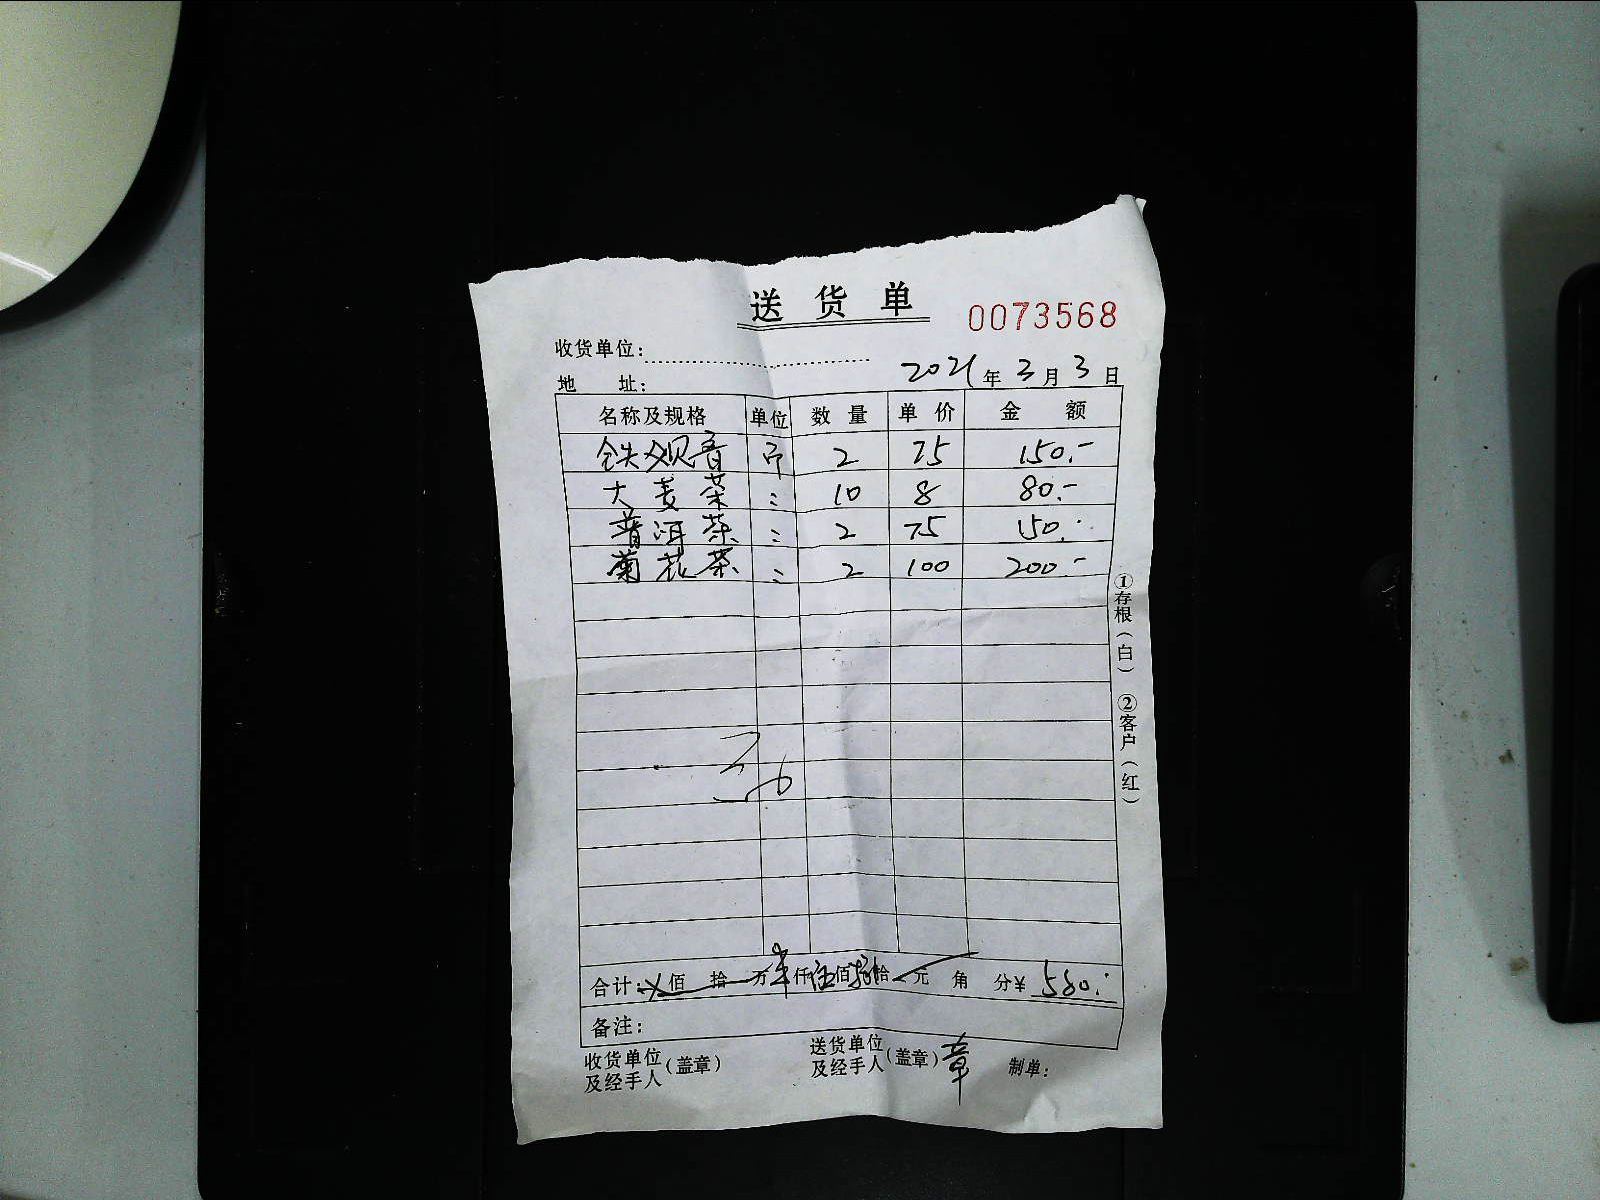 送货单
0073568
收货单位:
2021年3月3日
地 址:
名称及规格 单位 数量 单价 金额
铁观音 2 75 150.-
大麦茶 : 10 8 80.-
普洱茶 : 2 75 150.-
菊花茶 : 2 100 200.-
①存根(白) ②客户(红)
合计: 佰 拾 万 仟伍佰捌拾 元 角 分¥ 580.-
备注:
收货单位及经手人(盖章) 送货单位及经手人(盖章) 章 制单: